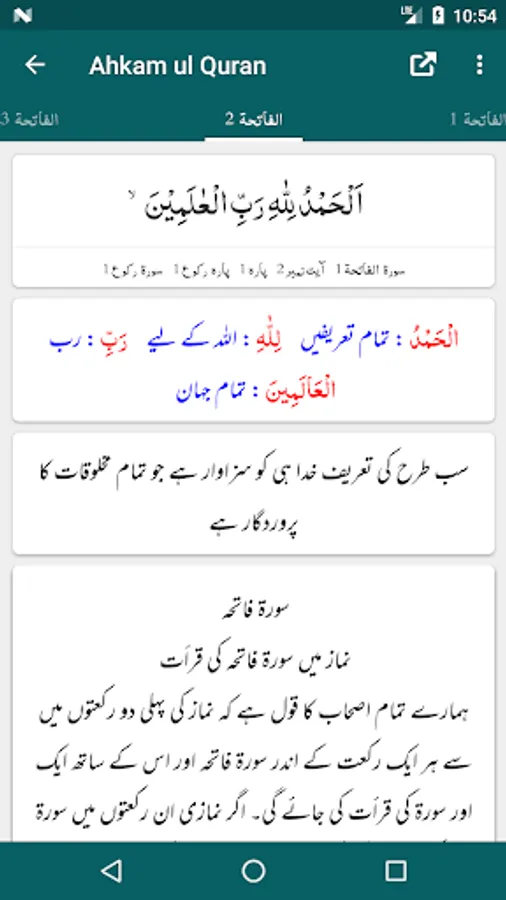 LTE 10:54
Ahkam ul Quran
الفاتحة 1 الفاتحة 2 الفاتحة 3
اَلْحَمْدُ لِلّٰهِ رَبِّ الْعٰلَمِيْنَ ۙ
سورۃ الفاتحة 1 آیت نمبر 2 پارہ 1 پارہ رکوع 1 سورۃ رکوع 1
الْحَمْدُ : تمام تعریفیں لِلّٰهِ : اللہ کے لیے رَبِّ : رب
الْعَالَمِينَ : تمام جہان
سب طرح کی تعریف خدا ہی کو سزاوار ہے جو تمام مخلوقات کا
پروردگار ہے
سورۃ فاتحہ
نماز میں سورۃ فاتحہ کی قرأت
ہمارے تمام اصحاب کا قول ہے کہ نماز کی پہلی دو رکعتوں میں
سے ہر ایک رکعت کے اندر سورۃ فاتحہ اور اس کے ساتھ ایک
اور سورۃ کی قرأت کی جائے گی۔ اگر نمازی ان رکعتوں میں سورۃ